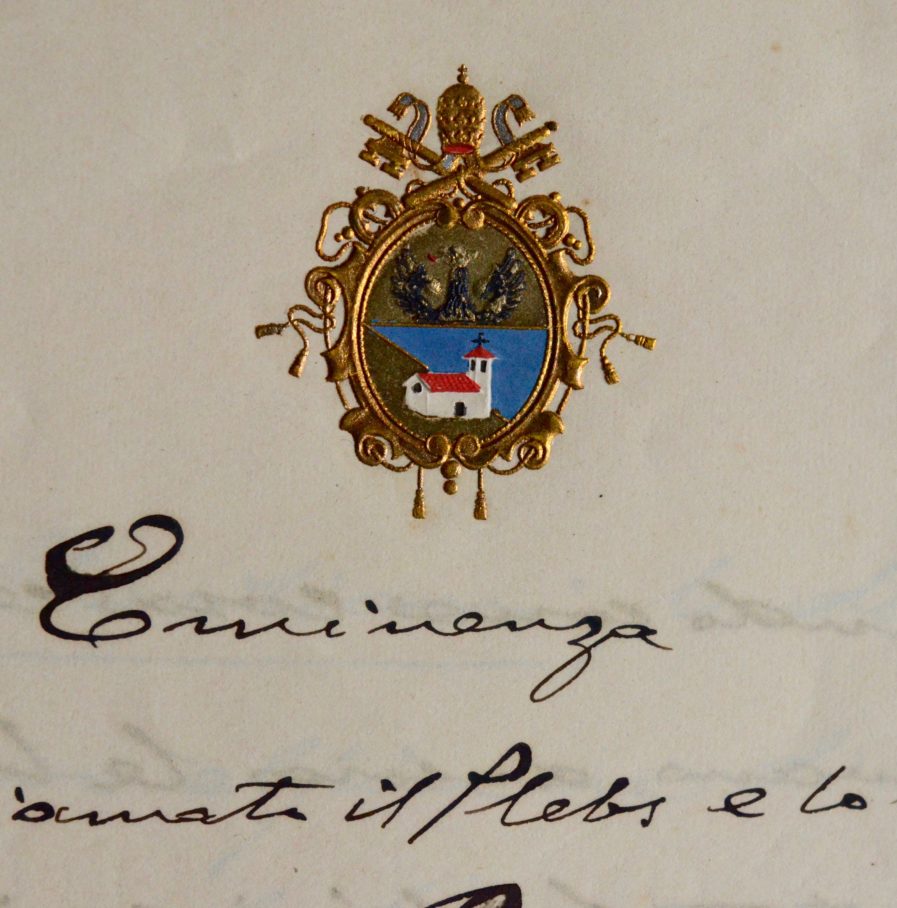 Eminenza
iamato il Plebs e lo